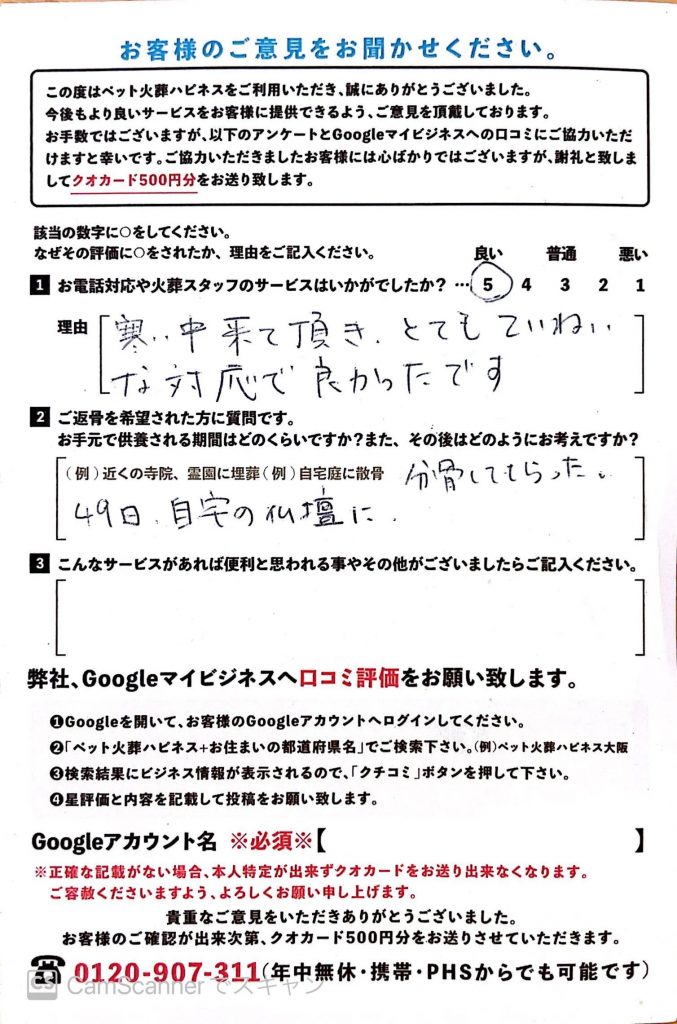 お客様のご意見をお聞かせください。
この度はペット火葬ハピネスをご利用いただき、誠にありがとうございました。
今後もより良いサービスをお客様に提供できるよう、ご意見を頂戴しております。
お手数ではございますが、以下のアンケートとGoogleマイビジネスへの口コミにご協力いただ
けますと幸いです。ご協力いただきましたお客様には心ばかりではございますが、謝礼と致しま
してクオカード500円分をお送り致します。
該当の数字に○をしてください。
なぜその評価に○をされたか、理由をご記入ください。
良い 普通 悪い
1 お電話対応や火葬スタッフのサービスはいかがでしたか? … 5 4 3 2 1
理由
寒い中来て頂き、とてもていねい
な対応で良かったです
2 ご返骨を希望された方に質問です。
お手元で供養される期間はどのくらいですか?また、その後はどのようにお考えですか?
(例)近くの寺院、霊園に埋葬(例)自宅庭に散骨 分骨してもらった。
49日、自宅の仏壇に、
3 こんなサービスがあれば便利と思われる事やその他がございましたらご記入ください。
弊社、Googleマイビジネスへ口コミ評価をお願い致します。
❶Googleを開いて、お客様のGoogleアカウントへログインしてください。
❷「ペット火葬ハピネス+お住まいの都道府県名」でご検索下さい。(例)ペット火葬ハピネス大阪
❸検索結果にビジネス情報が表示されるので、「クチコミ」ボタンを押して下さい。
❹星評価と内容を記載して投稿をお願い致します。
Googleアカウント名 ※必須※【 】
※正確な記載がない場合、本人特定が出来ずクオカードをお送り出来なくなります。
ご容赦くださいますよう、よろしくお願い申し上げます。
貴重なご意見をいただきありがとうございました。
お客様のご確認が出来次第、クオカード500円分をお送りさせていただきます。
0120-907-311(年中無休・携帯・PHSからでも可能です)
CS CamScannerでスキャン